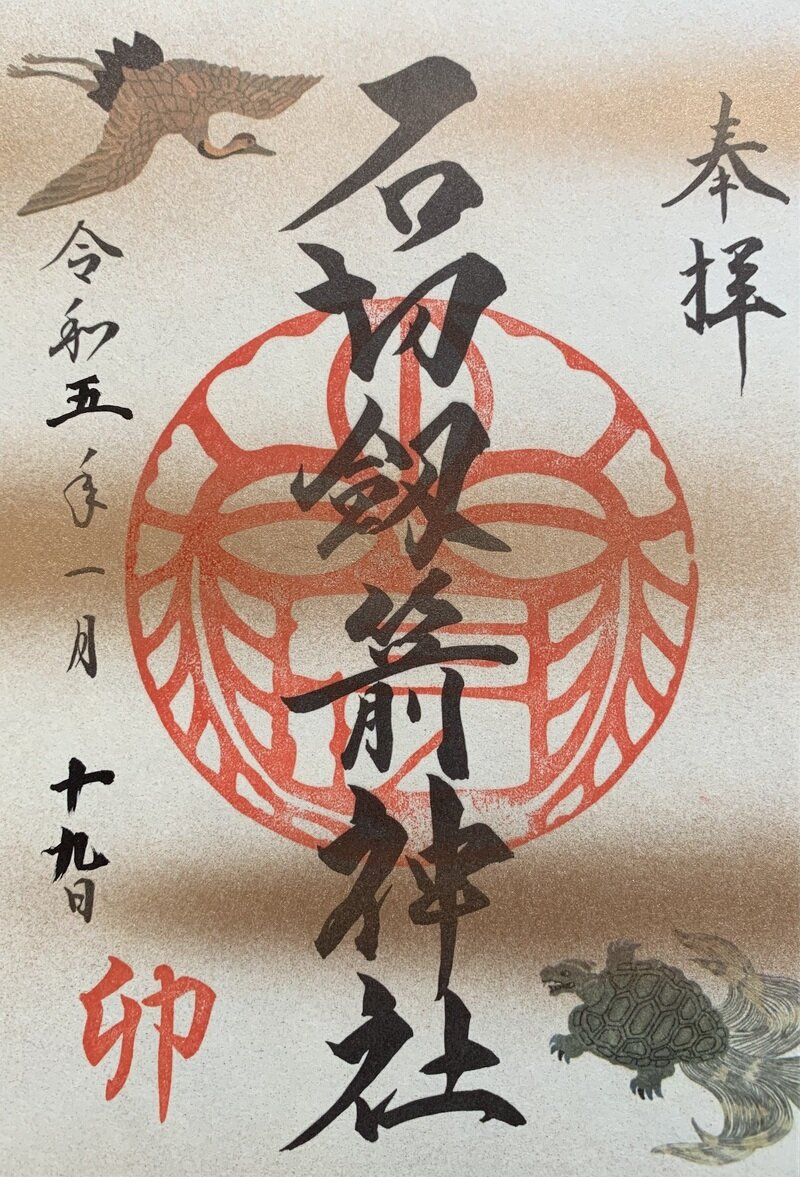 奉拝
石切劔箭神社
令和五年一月十九日
卯